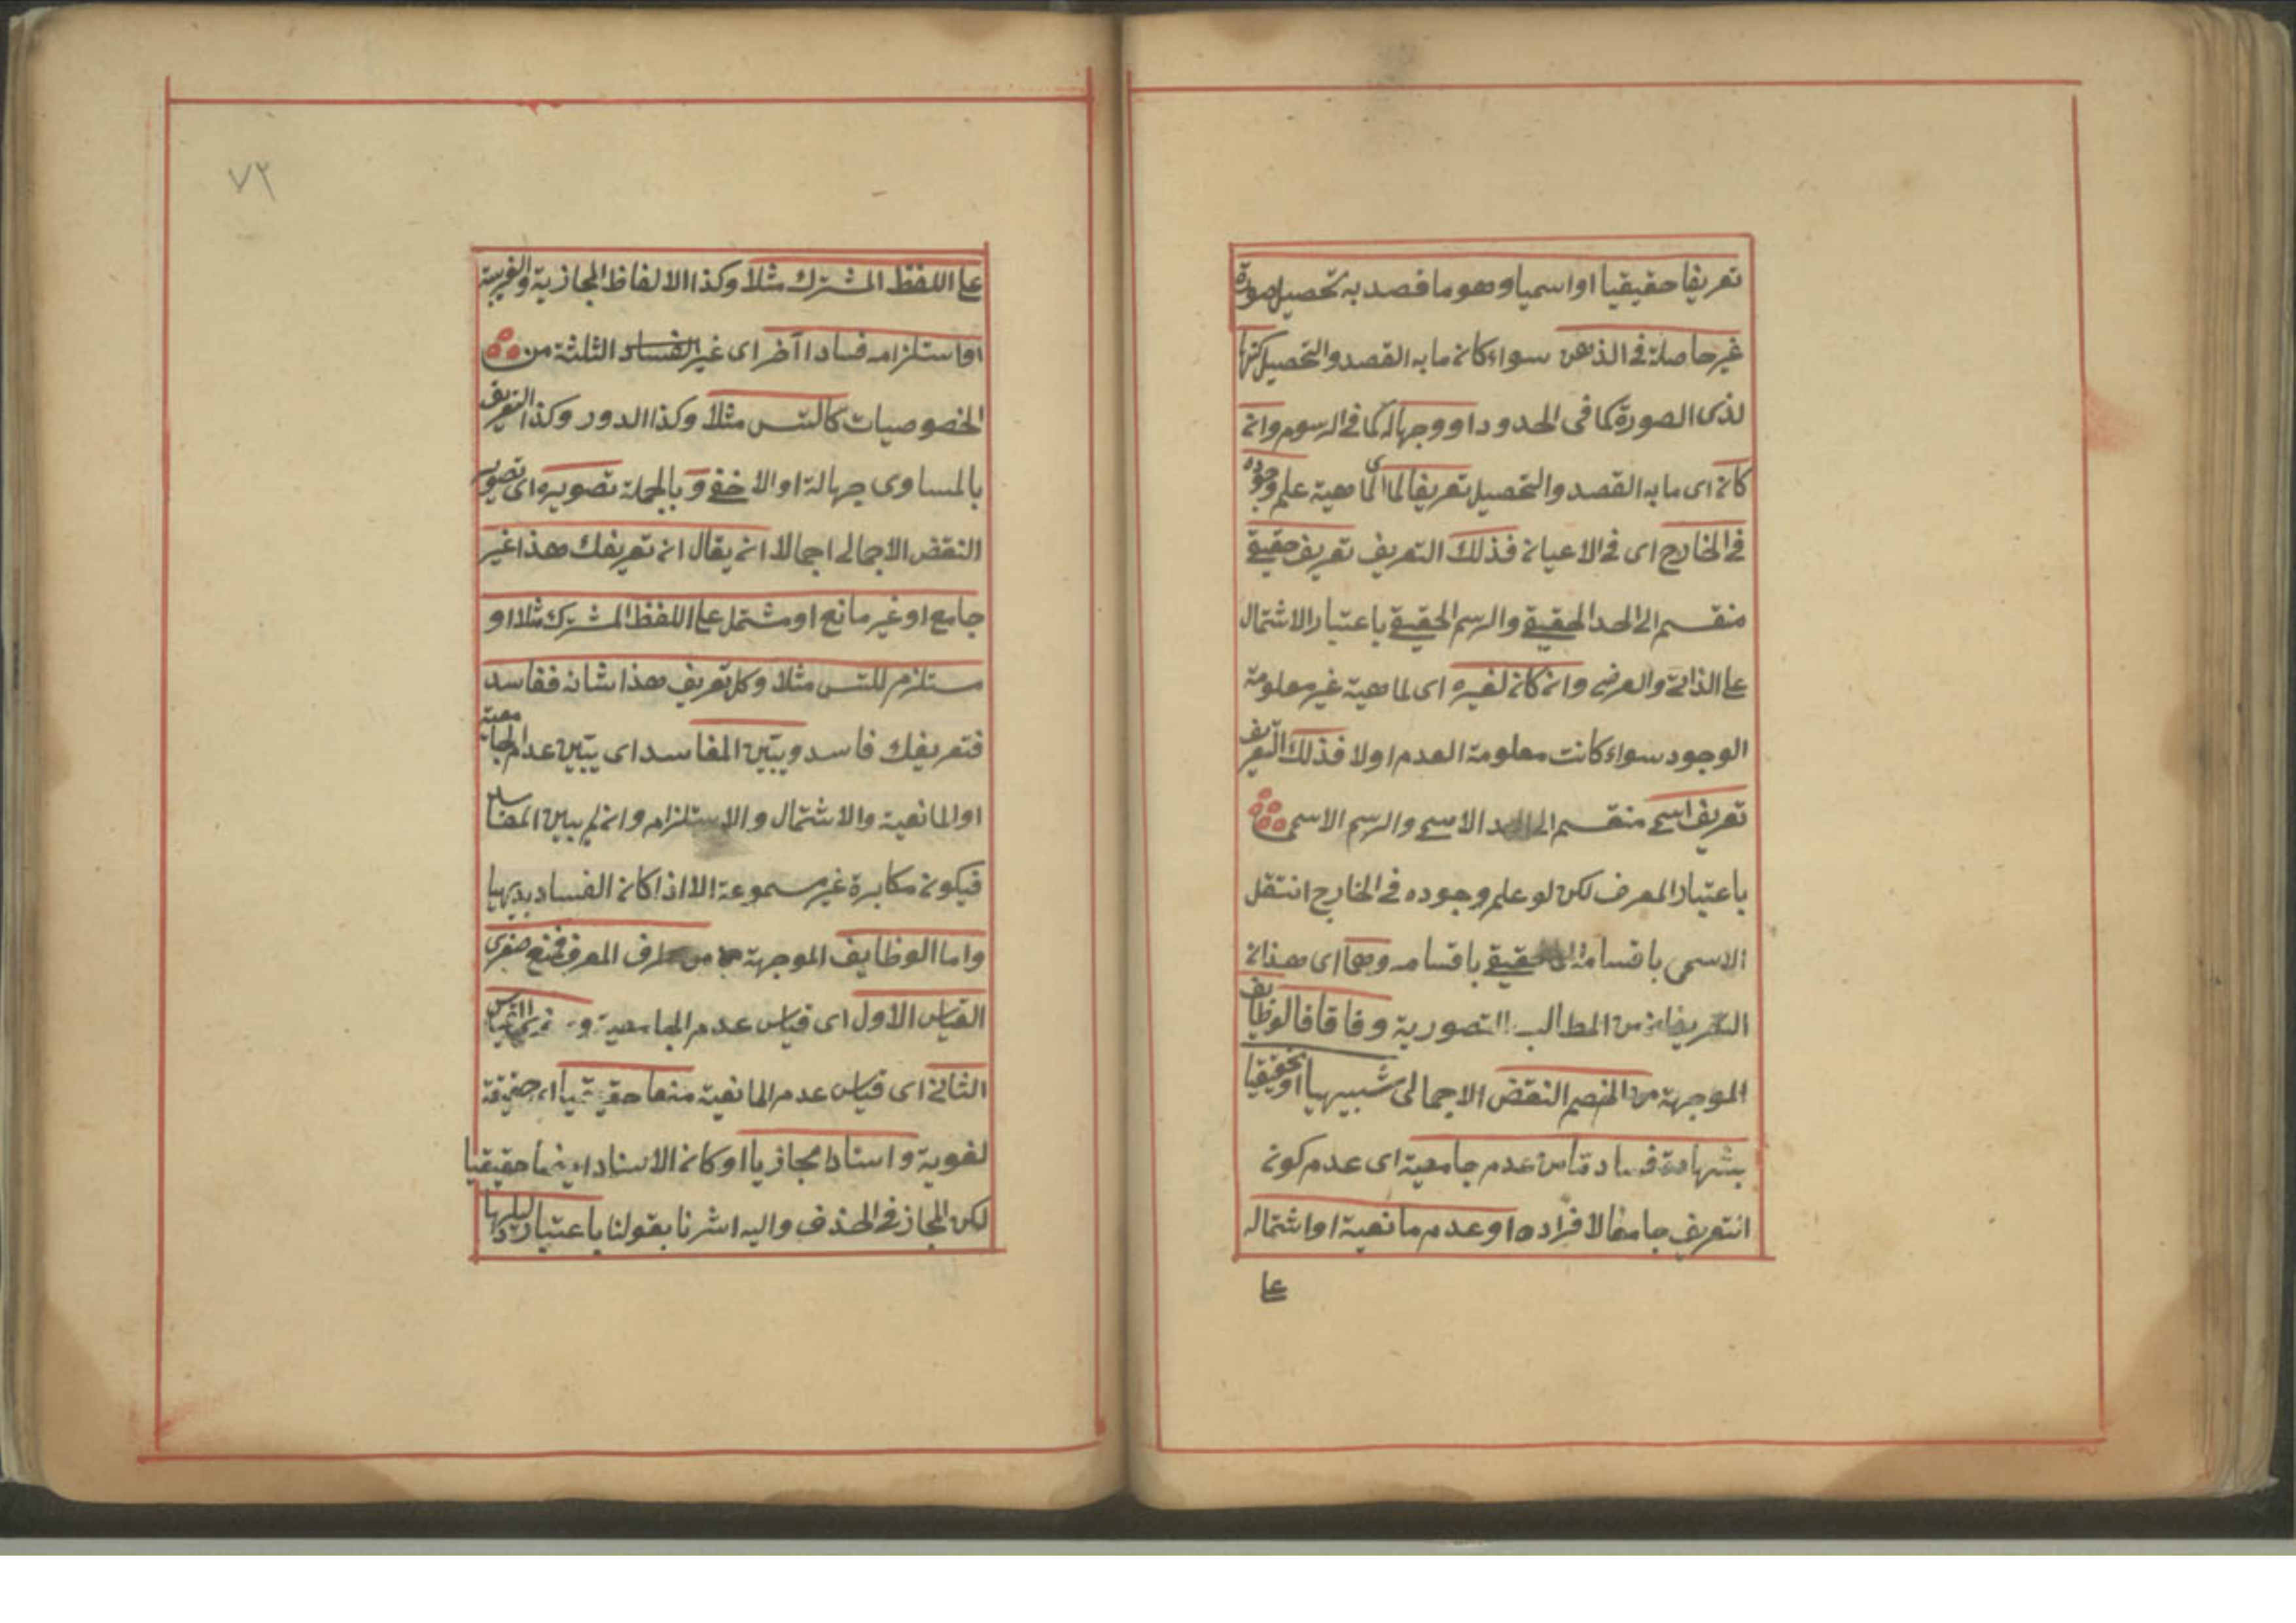 تعريفا حقيقيا او اسميا وهو ما قصد به تحصيل صورة
غير حاصلة فى الذهن سواء كان ما به القصد والتحصيل كنها
لذى الصورة كما فى الحدود او وجها له كما فى الرسوم وان
كان اى ما به القصد والتحصيل تعريفا لما اى لماهية علم وجوده
فى الخارج اى فى الاعيان فذلك التعريف تعريف حقيقى
منقسم الى الحد الحقيقى والرسم الحقيقى باعتبار الاشتمال
على الذاتى والعرضى وان كان لغيره اى لماهية غير معلومة
الوجود سواء كانت معلومة العدم اولا فذلك التعريف
تعريف اسمى منقسم الى الحد الاسمى والرسم الاسمى
باعتبار المعرف لكن لو علم وجوده فى الخارج انتقل
الاسمى باقسامه الى الحقيقى باقسامه وهما اى هذان
التعريفان من المطالب التصورية وفاقا فالوظايف
الموجهة من الخصم النقض الاجمالى شبيهيا او تحقيقيا
بشهادة فساد مّا من عدم جامعية اى عدم كون
التعريف جامعا لافراده او عدم مانعية او اشتماله
على
٧٢
على اللفظ المشترك مثلا وكذا الالفاظ المجازية والغريبة
او استلزامه فسادا آخر اى غير الفساد الثلثة من
الخصوصيات كالتس مثلا وكذا الدور وكذا التعريف
بالمساوى جهالة او الاخفى وبالجملة تصويره اى تصوير
النقض الاجمالى اجمالا ان يقال ان تعريفك هذا غير
جامع او غير مانع او مشتمل على اللفظ المشترك مثلا او
مستلزم للتس مثلا وكل تعريف هذا شانه ففاسد
فتعريفك فاسد ويبيّن المفاسد اى يبيّن عدم الجامعية
او المانعية والاشتمال والاستلزام وان لم يبين المفاسد
فيكون مكابرة غير مسموعة الا اذا كان الفساد بديهيا
واما الوظايف الموجهة من طرف المعرف فمنع صغرى
القياس الاول اى قياس عدم الجامعية و صغرى القياس
الثانى اى قياس عدم المانعية منعا حقيقيا اى حقيقة
لغوية واسنادا مجازيا او كان الاسناد ايضا حقيقيا
لكن المجاز فى الحذف واليه اشرنا بقولنا باعتبار دليلها